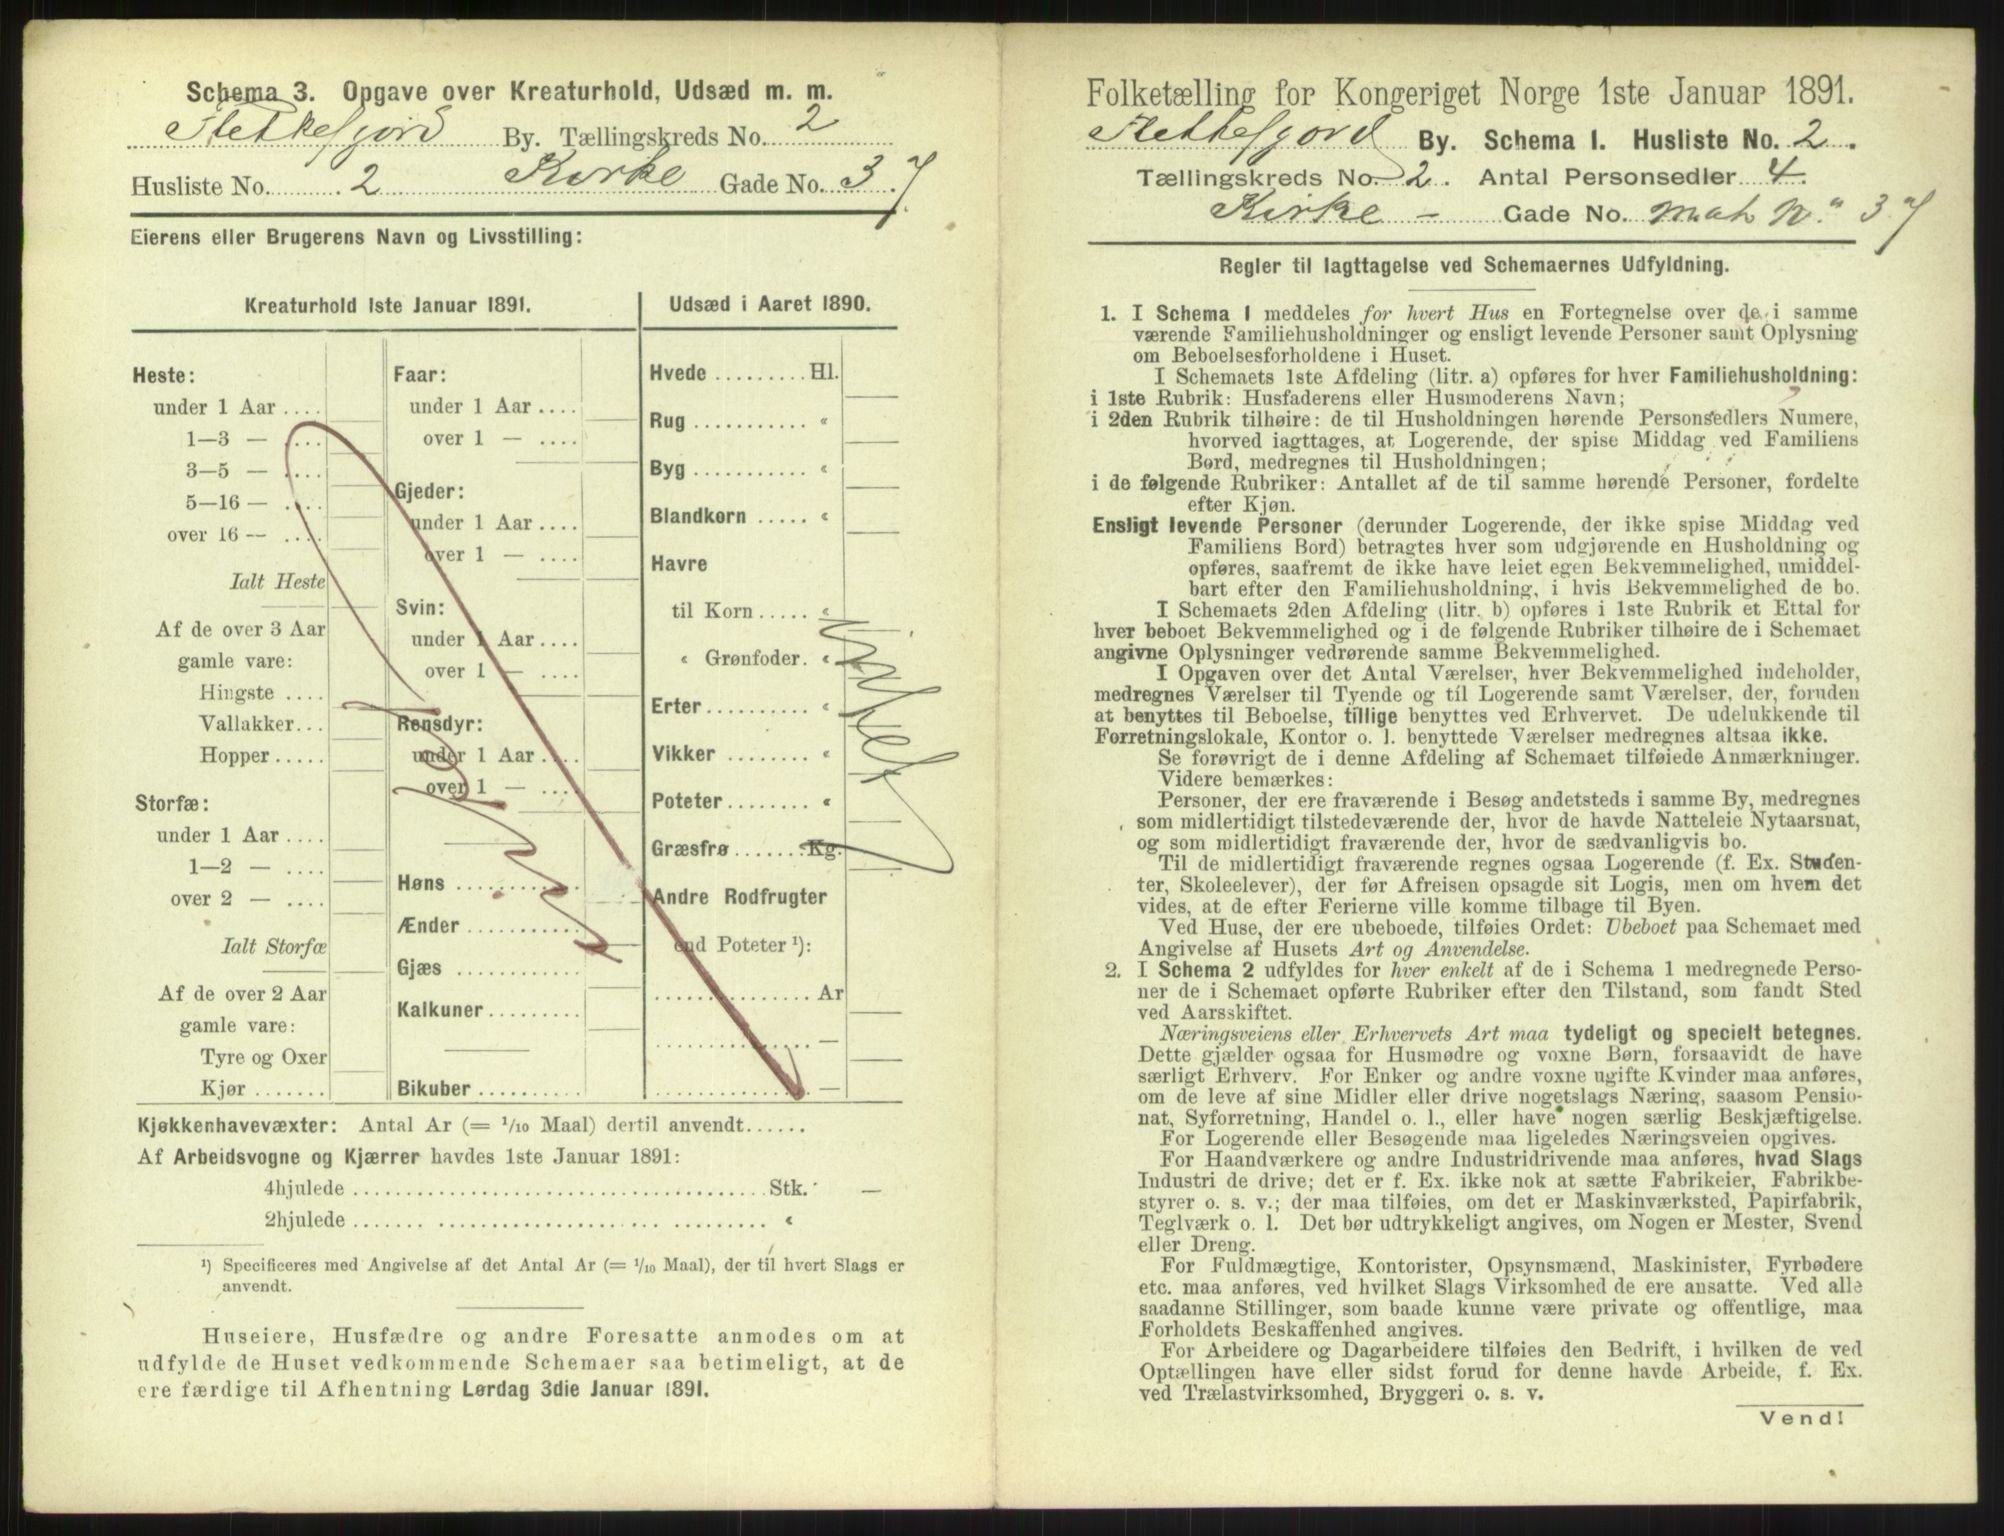 Schema 3. Opgave over Kreaturhold, Udsæd m. m.
Flekkefjord By. Tællingskreds No. 2
Husliste No. 2 Kirke Gade No. 37
Eierens eller Brugerens Navn og Livsstilling:
Kreaturhold 1ste Januar 1891.
Heste:
under 1 Aar ....
1—3 — ....
3—5 — ....
5—16 — ....
over 16 — ....
Ialt Heste
Af de over 3 Aar
gamle vare:
Hingste ....
Vallakker...
Hopper.....
Storfæ:
under 1 Aar ....
1—2 — ....
over 2 — ....
Ialt Storfæ
Af de over 2 Aar
gamle vare:
Tyre og Oxer
Kjør ........
Faar:
under 1 Aar ....
over 1 — ....
Gjeder:
under 1 Aar ....
over 1 — ....
Svin:
under 1 Aar ....
over 1 — ....
Rensdyr:
under 1 Aar ....
over 1 — ....
Høns ............
Ænder ...........
Gjæs ............
Kalkuner.........
Bikuber..........
intet
Udsæd i Aaret 1890.
Hvede ......... Hl.
Rug ........... «
Byg ........... «
Blandkorn ..... «
Havre
til Korn ..... «
« Grønfoder. «
Erter......... «
Vikker ....... «
Poteter ....... «
Græsfrø....... Kg.
Andre Rodfrugter
end Poteter ¹):
.............. Ar
.............. —
.............. —
intet
Kjøkkenhavevæxter: Antal Ar (= 1/10 Maal) dertil anvendt......
Af Arbeidsvogne og Kjærrer havdes 1ste Januar 1891:
4hjulede ........................................ Stk. —
2hjulede ........................................ «
¹) Specificeres med Angivelse af det Antal Ar (= 1/10 Maal), der til hvert Slags er
anvendt.
Huseiere, Husfædre og andre Foresatte anmodes om at
udfylde de Huset vedkommende Schemaer saa betimeligt, at de
ere færdige til Afhentning Lørdag 3die Januar 1891.
Folketælling for Kongeriget Norge 1ste Januar 1891.
Flekkefjord By. Schema 1. Husliste No. 2.
Tællingskreds No. 2. Antal Personsedler 4.
Kirke – Gade No. mat N. 37
Regler til Iagttagelse ved Schemaernes Udfyldning.
1. I Schema 1 meddeles for hvert Hus en Fortegnelse over de i samme
værende Familiehusholdninger og ensligt levende Personer samt Oplysning
om Beboelsesforholdene i Huset.
I Schemaets 1ste Afdeling (litr. a) opføres for hver Familiehusholdning:
i 1ste Rubrik: Husfaderens eller Husmoderens Navn;
i 2den Rubrik tilhøire: de til Husholdningen hørende Personsedlers Numere,
hvorved iagttages, at Logerende, der spise Middag ved Familiens
Bord, medregnes til Husholdningen;
i de følgende Rubriker: Antallet af de til samme hørende Personer, fordelte
efter Kjøn.
Ensligt levende Personer (derunder Logerende, der ikke spise Middag ved
Familiens Bord) betragtes hver som udgjørende en Husholdning og
opføres, saafremt de ikke have leiet egen Bekvemmelighed, umiddel-
bart efter den Familiehusholdning, i hvis Bekvemmelighed de bo.
I Schemaets 2den Afdeling (litr. b) opføres i 1ste Rubrik et Ettal for
hver beboet Bekvemmelighed og i de følgende Rubriker tilhøire de i Schemaet
angivne Oplysninger vedrørende samme Bekvemmelighed.
I Opgaven over det Antal Værelser, hver Bekvemmelighed indeholder,
medregnes Værelser til Tyende og til Logerende samt Værelser, der, foruden
at benyttes til Beboelse, tillige benyttes ved Erhvervet. De udelukkende til
Forretningslokale, Kontor o. l. benyttede Værelser medregnes altsaa ikke.
Se forøvrigt de i denne Afdeling af Schemaet tilføiede Anmærkninger.
Videre bemærkes:
Personer, der ere fraværende i Besøg andetsteds i samme By, medregnes
som midlertidigt tilstedeværende der, hvor de havde Natteleie Nytaarsnat,
og som midlertidigt fraværende der, hvor de sædvanligvis bo.
Til de midlertidigt fraværende regnes ogsaa Logerende (f. Ex. Studen-
ter, Skoleelever), der før Afreisen opsagde sit Logis, men om hvem det
vides, at de efter Ferierne ville komme tilbage til Byen.
Ved Huse, der ere ubeboede, tilføies Ordet: Ubeboet paa Schemaet med
Angivelse af Husets Art og Anvendelse.
2. I Schema 2 udfyldes for hver enkelt af de i Schema 1 medregnede Perso-
ner de i Schemaet opførte Rubriker efter den Tilstand, som fandt Sted
ved Aarsskiftet.
Næringsveiens eller Erhvervets Art maa tydeligt og specielt betegnes.
Dette gjælder ogsaa for Husmødre og voxne Børn, forsaavidt de have
særligt Erhverv. For Enker og andre voxne ugifte Kvinder maa anføres,
om de leve af sine Midler eller drive nogetslags Næring, saasom Pensio-
nat, Syforretning, Handel o. l., eller have nogen særlig Beskjæftigelse.
For Logerende eller Besøgende maa ligeledes Næringsveien opgives.
For Haandværkere og andre Industridrivende maa anføres, hvad Slags
Industri de drive; det er f. Ex. ikke nok at sætte Fabrikeier, Fabrikbe-
styrer o. s. v.; der maa tilføies, om det er Maskinværksted, Papirfabrik,
Teglværk o. l. Det bør udtrykkeligt angives, om Nogen er Mester, Svend
eller Dreng.
For Fuldmægtige, Kontorister, Opsynsmænd, Maskinister, Fyrbødere
etc. maa anføres, ved hvilket Slags Virksomhed de ere ansatte. Ved alle
saadanne Stillinger, som baade kunne være private og offentlige, maa
Forholdets Beskaffenhed angives.
For Arbeidere og Dagarbeidere tilføies den Bedrift, i hvilken de ved
Optællingen have eller sidst forud for denne havde Arbeide, f. Ex.
ved Trælastvirksomhed, Bryggeri o. s. v.
Vend!